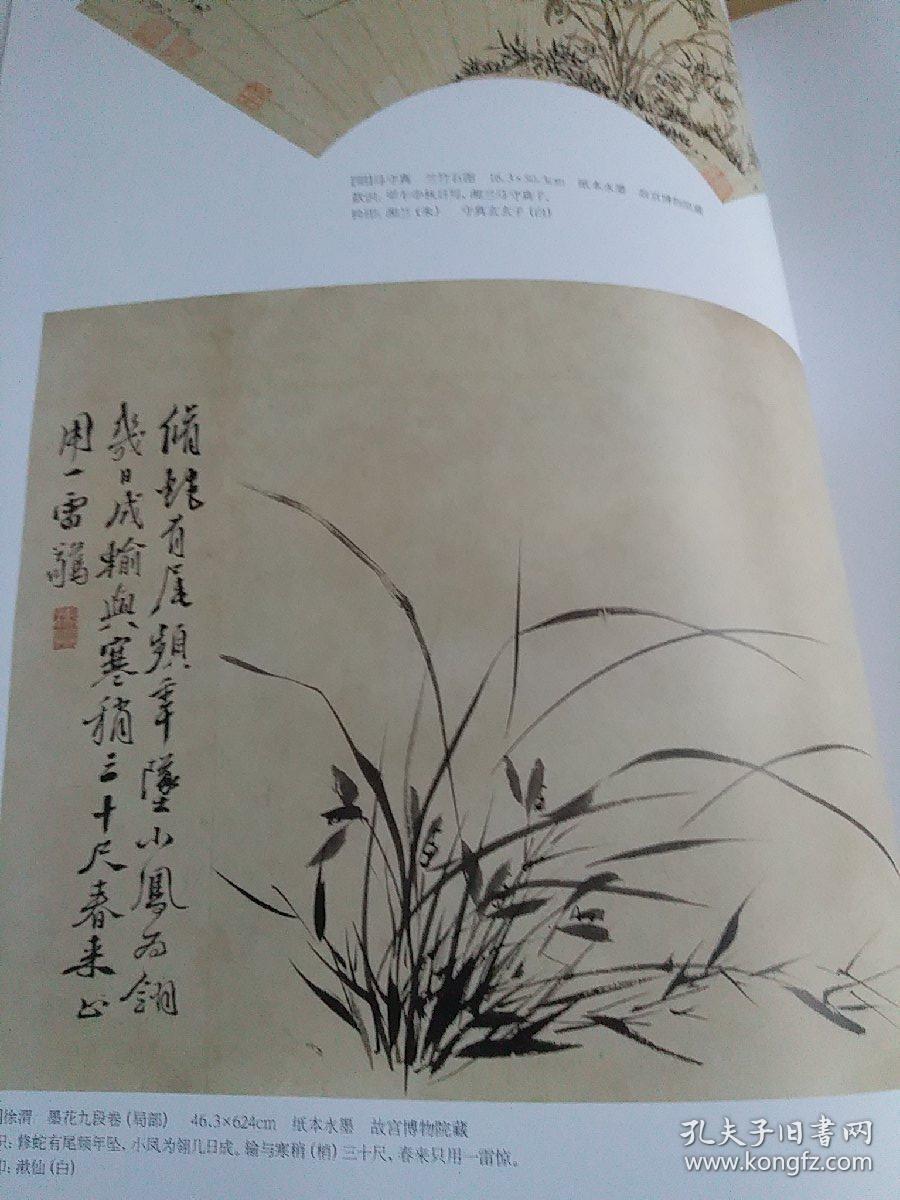 马守真 兰竹石图 16.3×50.3cm 纸本水墨 故宫博物院藏
款识: 日写, 湘兰马守真子。
钤印: 湘兰(朱) 守真玄玄子(白)
脩蛇有尾頻年墜小鳳為翎
幾日成輸與寒稍三十尺春来止
用一雷驚
徐渭 墨花九段卷(局部) 46.3×624cm 纸本水墨 故宫博物院藏
识: 修蛇有尾频年坠, 小凤为翎几日成。输与寒稍(梢)三十尺, 春来只用一雷惊。
印: 漱仙(白)
孔夫子旧书网
www.kongfz.com